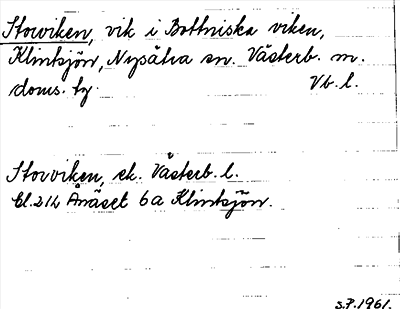 Storviken, vik i Bottniska viken,
Klintsjön, Nysätra sn. Västerb. m.
doms. tg. Vb. l.
Storviken, ek. Västerb. l.
Bl. 212 Ånäset 6a Klintsjön.
S.P. 1961.